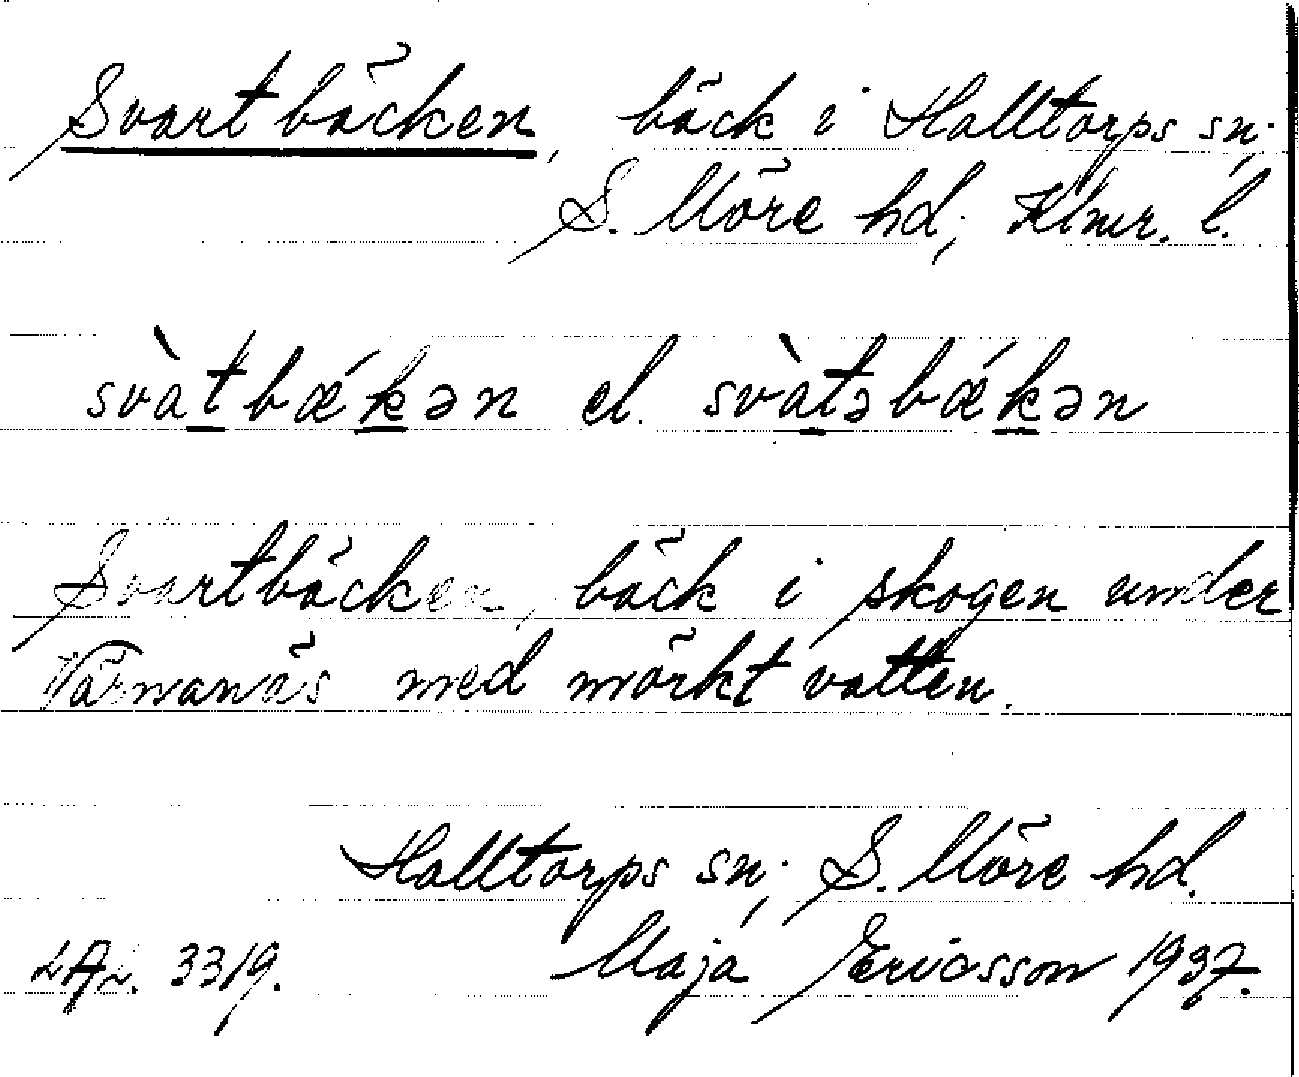 Svartbäcken, bäck i Halltorps sn;
S. Möre hd; Klmr. l.
svàtbǽkən el. svàtəbǽkən
Svartbäcken, bäck i skogen under
Värnanäs med mörkt vatten.
Halltorps sn; S. Möre hd.
LAL. 3319. Maja Ericsson 1937.